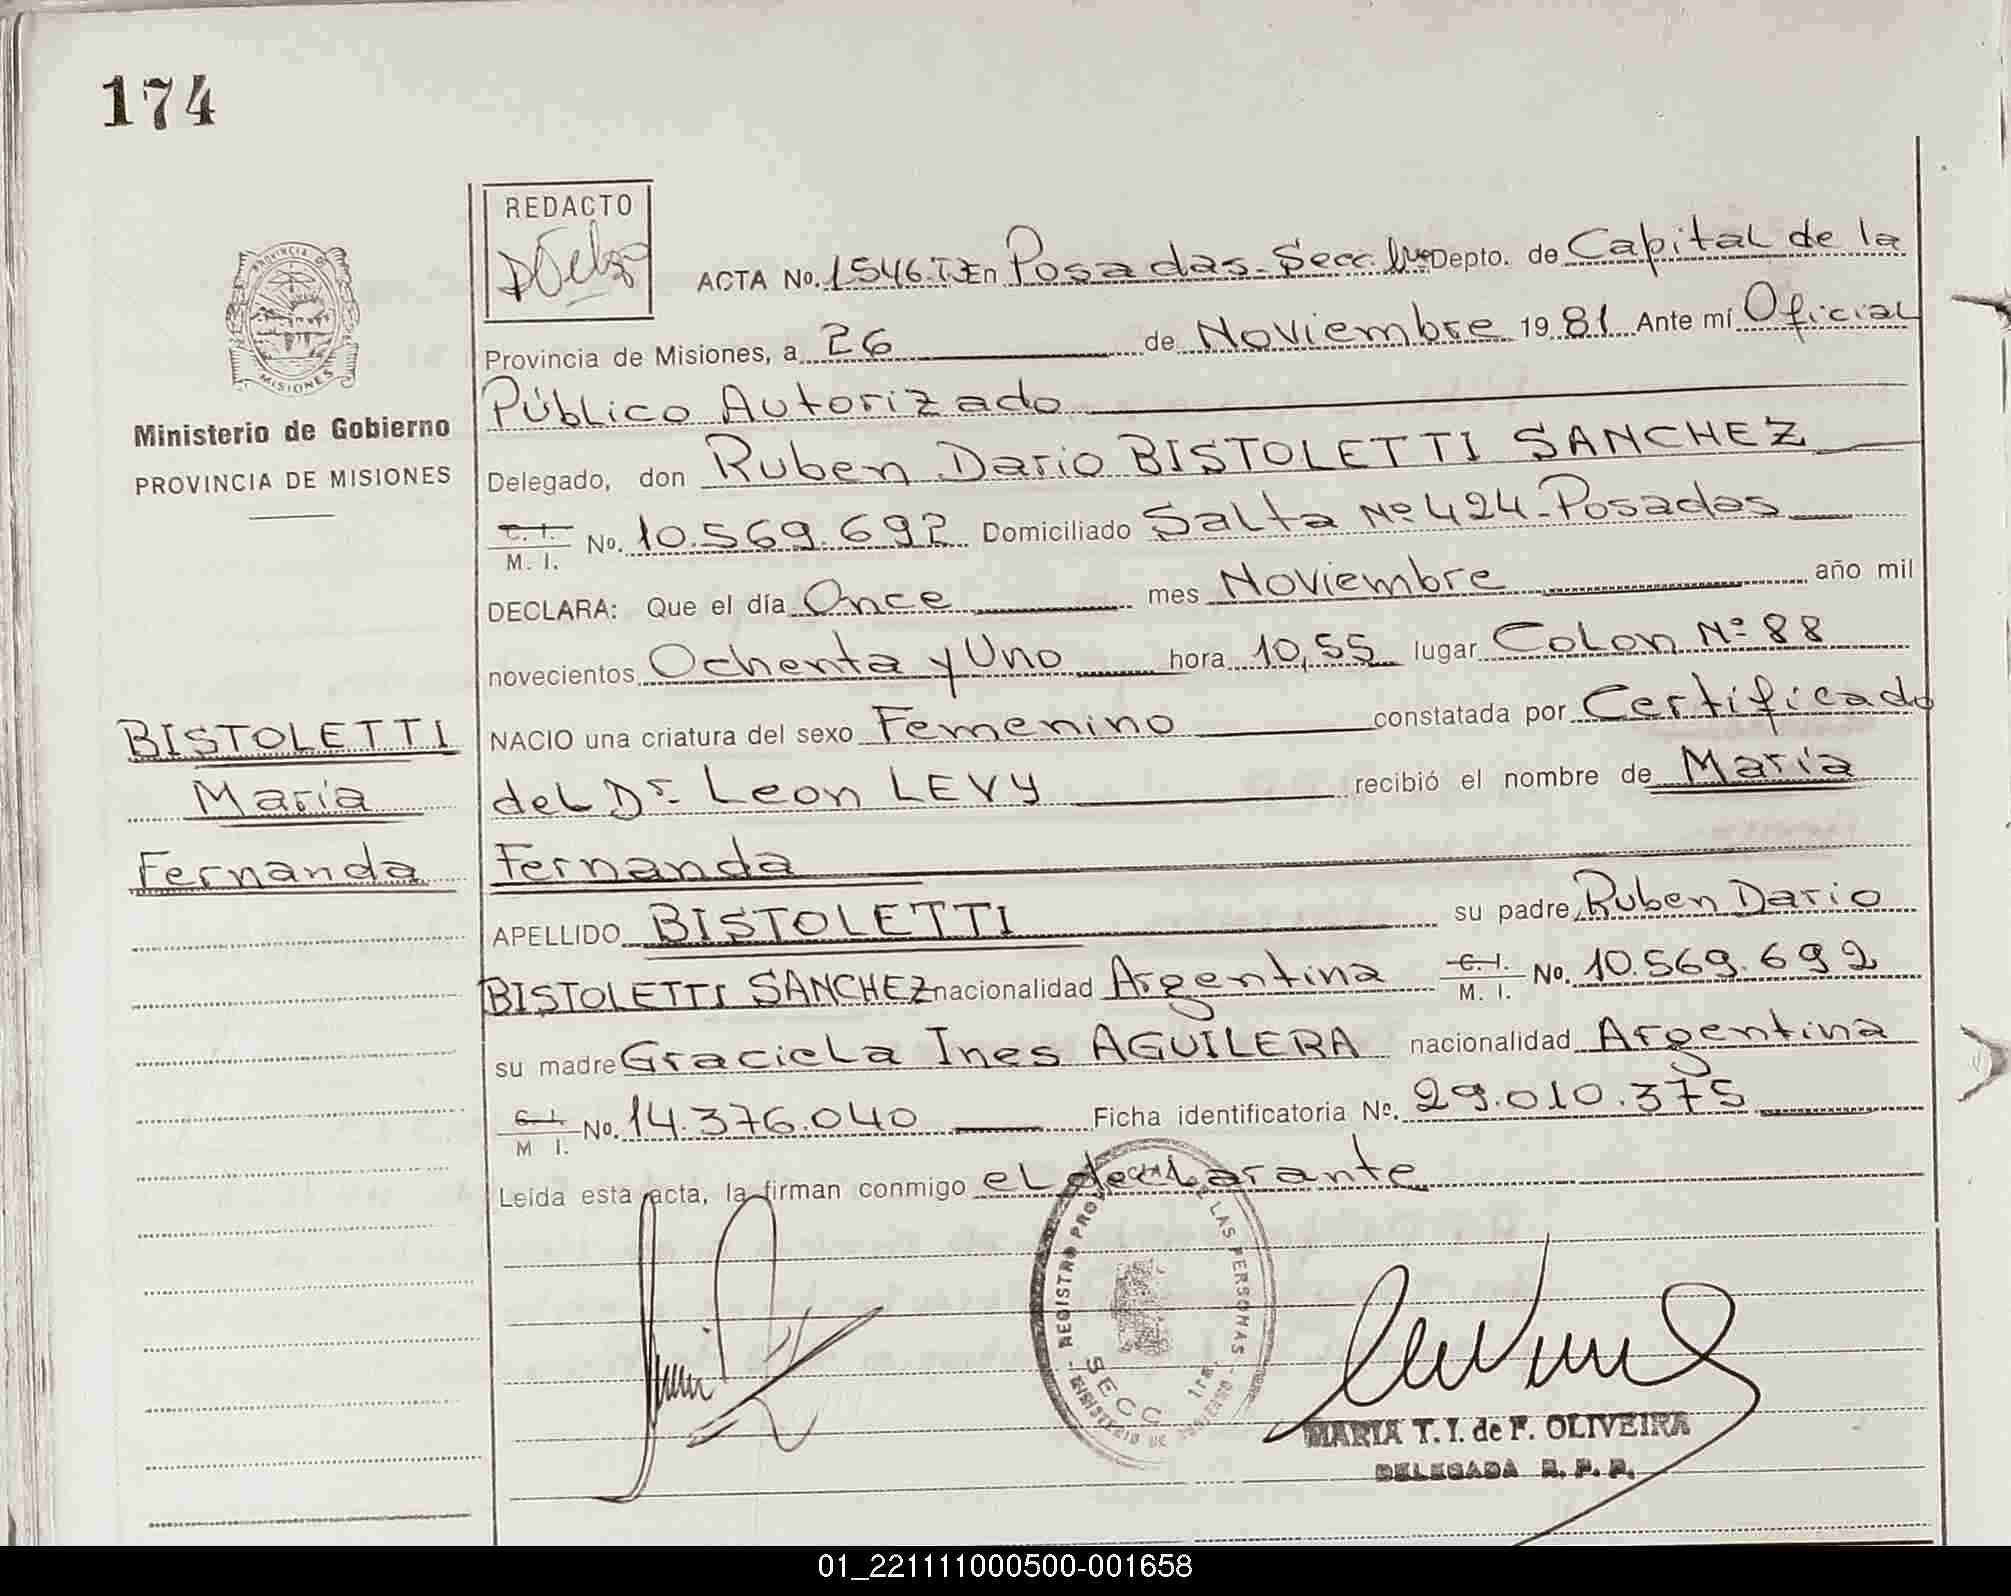 174
REDACTO
PROVINCIA DE
MISIONES
ACTA No. 1546.T.I En Posadas-Secc. 1ra Depto. de Capital de la
Provincia de Misiones, a 26 de Noviembre 1981 Ante mí Oficial
Ministerio de Gobierno
PROVINCIA DE MISIONES
Público Autorizado
Delegado, don Ruben Dario BISTOLETTI SANCHEZ
C. I.
M. I. No. 10.569.692 Domiciliado Salta Nº 424-Posadas
DECLARA: Que el día Once mes Noviembre año mil
novecientos Ochenta y Uno hora 10,55 lugar Colon Nº 88
BISTOLETTI
María
Fernanda
NACIO una criatura del sexo Femenino constatada por Certificado
del Dr. Leon LEVY recibió el nombre de María
Fernanda
APELLIDO BISTOLETTI su padre Ruben Dario
BISTOLETTI SANCHEZ nacionalidad Argentina C. I. M. I. No. 10.569.692
su madre Graciela Ines AGUILERA nacionalidad Argentina
C. I.
M I. No. 14.376.040 Ficha identificatoria Nº. 29.010.375
Leída esta acta, la firman conmigo el declarante
REGISTRO PROV LAS PERSONAS
MINISTERIO DE GOBIERNO
SECC 1ra.
MARIA T. I. de F. OLIVEIRA
DELEGADA R. P. P.
01_221111000500-001658